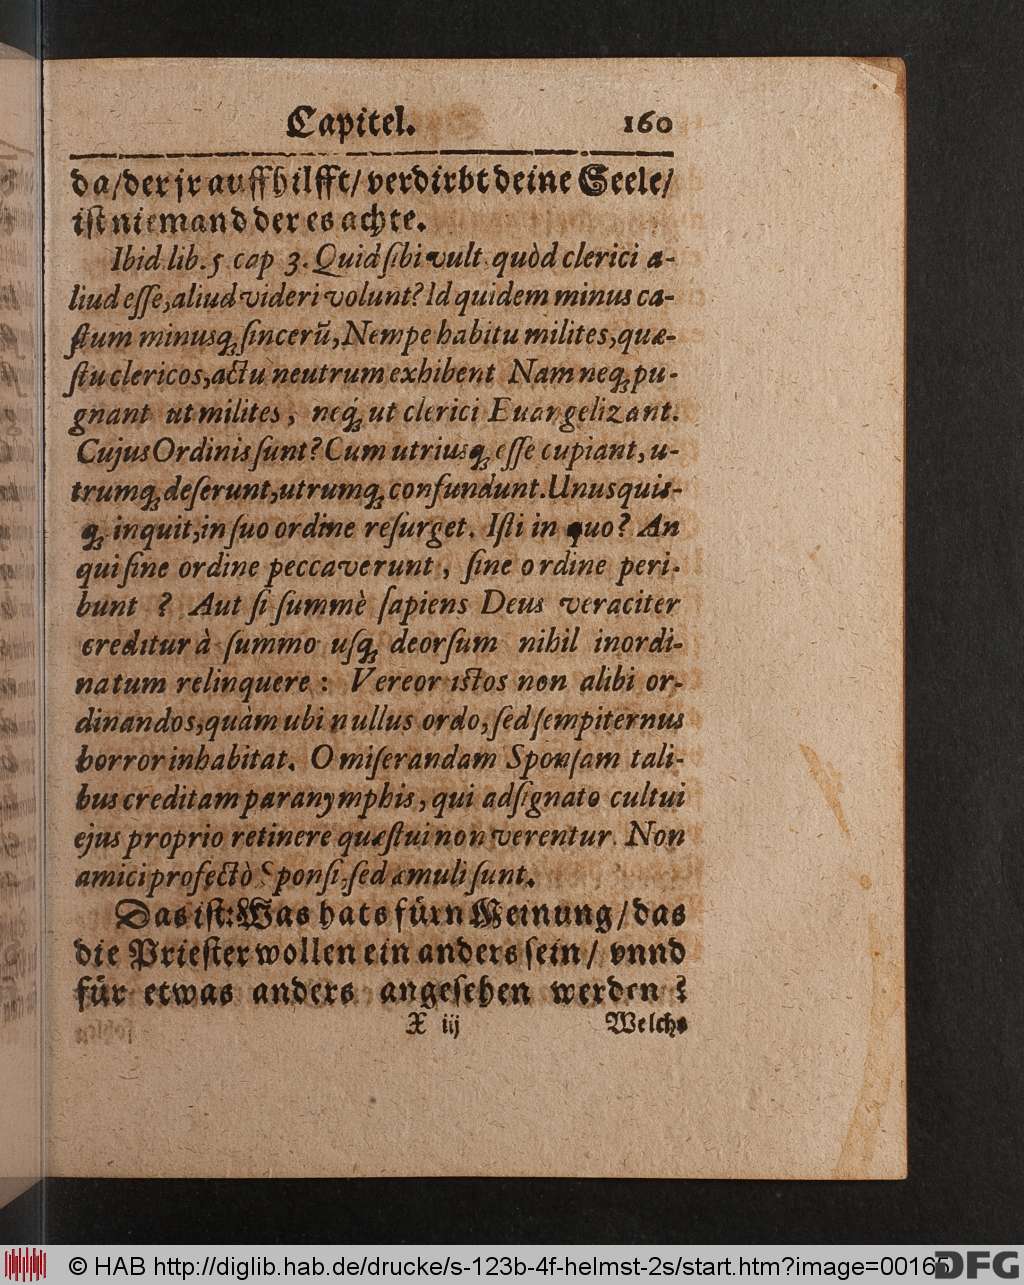 Capitel. 160
da/der jr auffhilfft/verdirbt deine Seele/
iſt niemand der es achte.
Ibid lib. 5 cap 3. Quid ſibi vult quòd clerici a-
liud eſſe, aliud videri volunt? Id quidem minus ca-
ſtum minusq́; ſincerũ, Nempe habitu milites, quæ-
ſtu clericos, actu neutrum exhibent Nam neq; pu-
gnant ut milites, neq́; ut clerici Euangelizant.
Cujus Ordinis ſunt? Cum utriusq; eſſe cupiant, u-
trumq; deſerunt, utrumq; confundunt. Unusquis-
q; inquit, in ſuo ordine reſurget. Iſti in quo? An
qui ſine ordine peccaverunt, ſine ordine peri-
bunt ? Aut ſi ſummè ſapiens Deus veraciter
creditur à ſummo uſq; deorſum nihil inordi-
natum relinquere : Vereor istos non alibi or-
dinandos, quàm ubi nullus ordo, ſed ſempiternus
horror inhabitat. O miſerandam Sponſam tali-
bus creditam paranymphis, qui adſignato cultui
ejus proprio retinere quæſtui non verentur. Non
amici profectò Sponſi, ſed æmuli ſunt.
Das iſt: Was hats fürn Meinung/das
die Prieſter wollen ein anders ſein/ vnnd
für etwas anders angeſehen werden ?
X iij Welchs
© HAB http://diglib.hab.de/drucke/s-123b-4f-helmst-2s/start.htm?image=00165
DFG